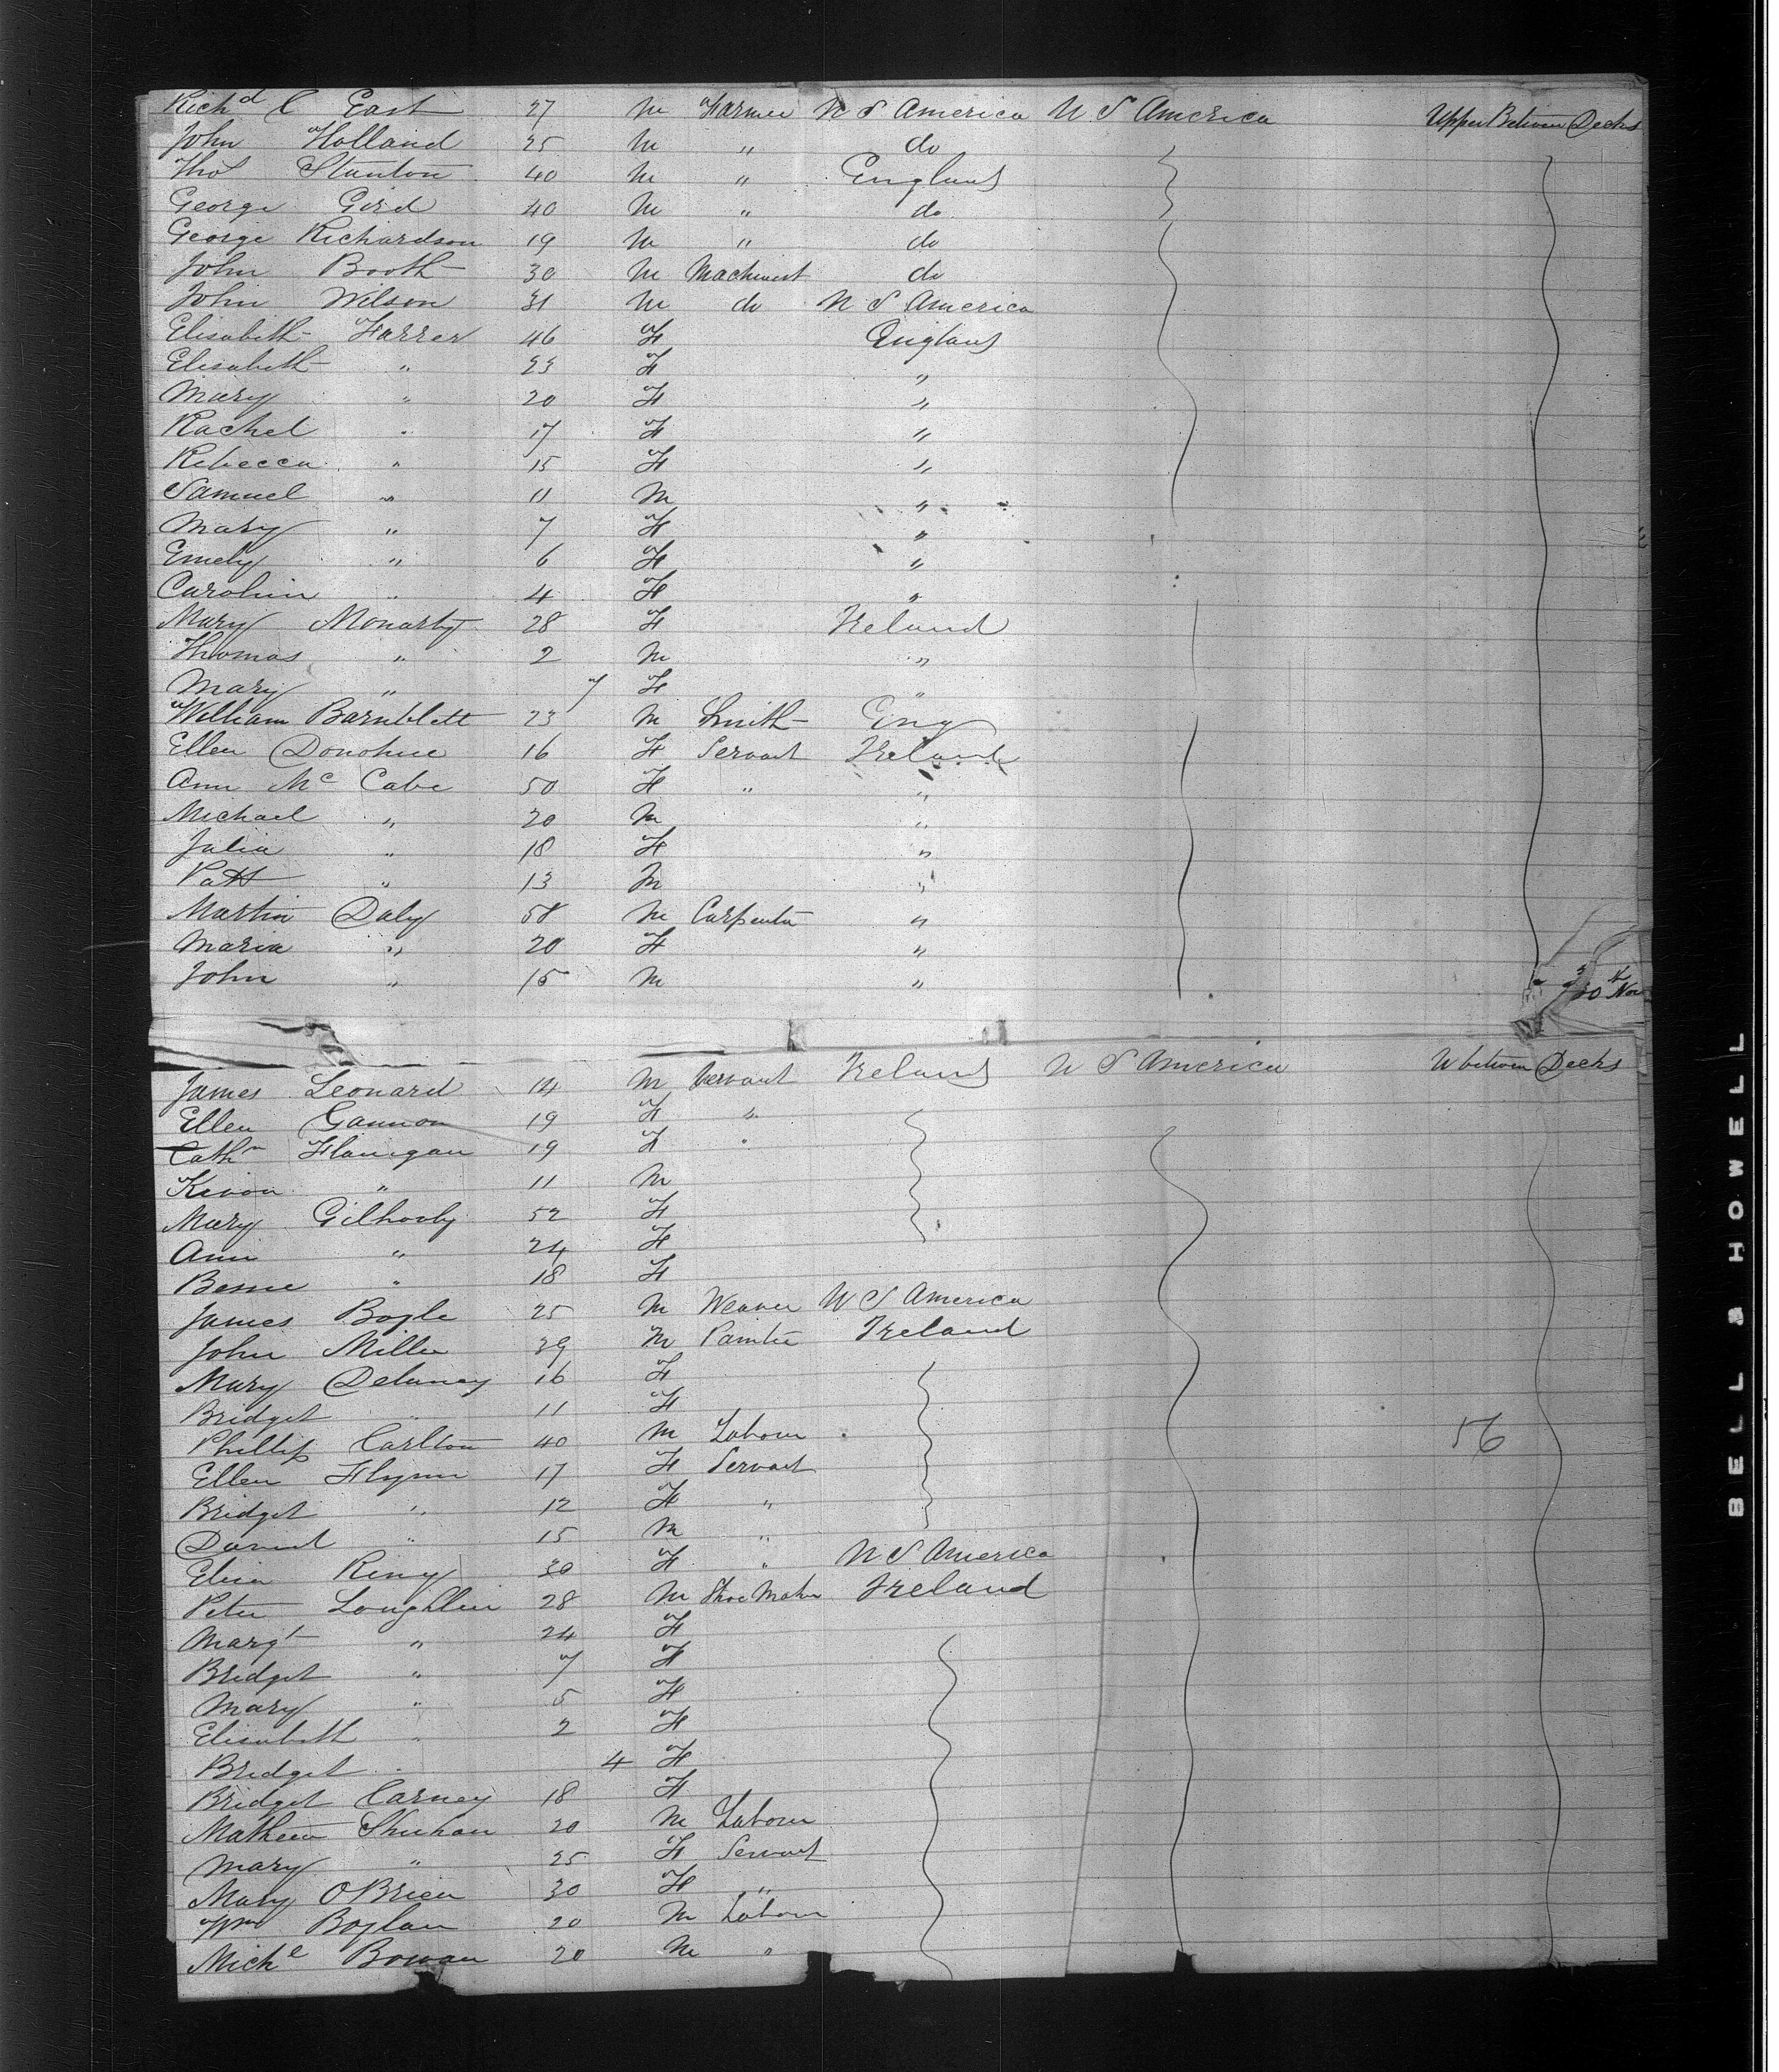 Richd C East 27 M Farmer U S America U S America Upper Between Decks
John Holland 25 M " do
Thos Stanton 40 M " England
George Gird 40 M " do
George Richardson 19 M " do
John Booth 30 M Machinest do
John Wilson 31 M do U S America
Elisabeth Farrer 46 F England
Elisabeth " 23 F "
Mary " 20 F "
Rachel " 17 F "
Rebecca " 15 F "
Samuel " 11 M "
Mary " 7 F "
Emely " 6 F "
Carolin " 4 F "
Mary Monarty 28 F Ireland
Thomas " 2 M "
Mary " 7 F "
William Barnblett 23 M Smith Eng
Ellen Donohue 16 F Servant Ireland
Ann Mc Cabe 50 F " "
Michael " 20 M "
Julia " 18 F "
Patt " 13 M "
Martin Daly 58 M Carpenter "
Maria " 20 F "
John " 15 M "
30th Nov
James Leonard 14 M Servant Ireland U S America U between Decks
Ellen Gannon 19 F "
Cathn Flanigan 19 F "
Kivon " 11 M
Mary Gilhooly 52 F
Ann " 24 F
Bessie " 18 F
James Bogle 25 M Weaver U S America
John Miller 39 M Painter Ireland
Mary Delaney 16 F
Bridget " 11 F
Phillip Carlton 40 M Labour 56
Ellen Flynn 17 F Servant
Bridget " 12 F "
Daniel " 15 M "
Elisa Reny 30 F " U S America
Peter Loughlin 28 M Shoe Maker Ireland
Margt " 24 F
Bridget " 7 F
Mary " 5 F
Elisabeth " 2 F
Bridget " 4 F
Bridget Carney 18 F
Mathew Shuhan 20 M Labour
Mary " 25 F Servant
Mary O'Brien 30 F "
Wm Boylan 20 M Labour
Michl Bowan 20 M "
BELL & HOWELL